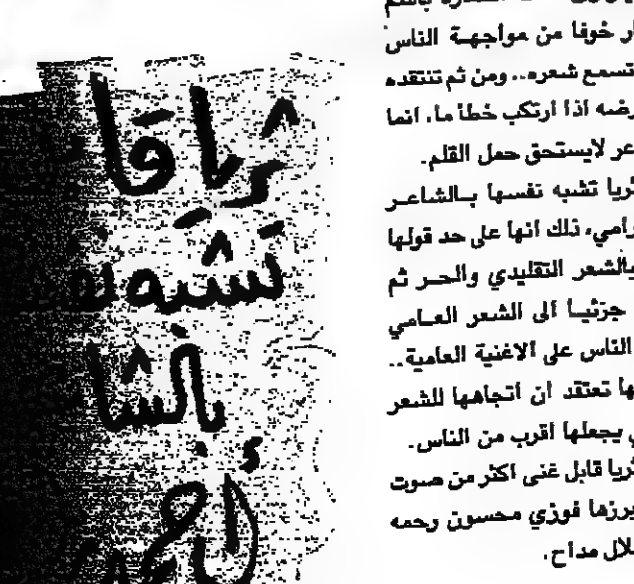 ثريا قا
تشبه نف
بالشا
أحمد
باسم
خوفا من مواجهة الناس
تسمع شعره.. ومن ثم تنتقده
اذا ارتكب خطأ ما. انما
لايستحق حمل القلم.
ثريا تشبه نفسها بالشاعر
رامي، ذلك انها على حد قولها
بالشعر التقليدي والحر ثم
جزئيا الى الشعر العامي
الناس على الاغنية العامية..
تعتقد ان اتجاهها للشعر
يجعلها اقرب من الناس.
ثريا قابل غنى اكثر من صوت
يبرزها فوزي محسون رحمه
طلال مداح.